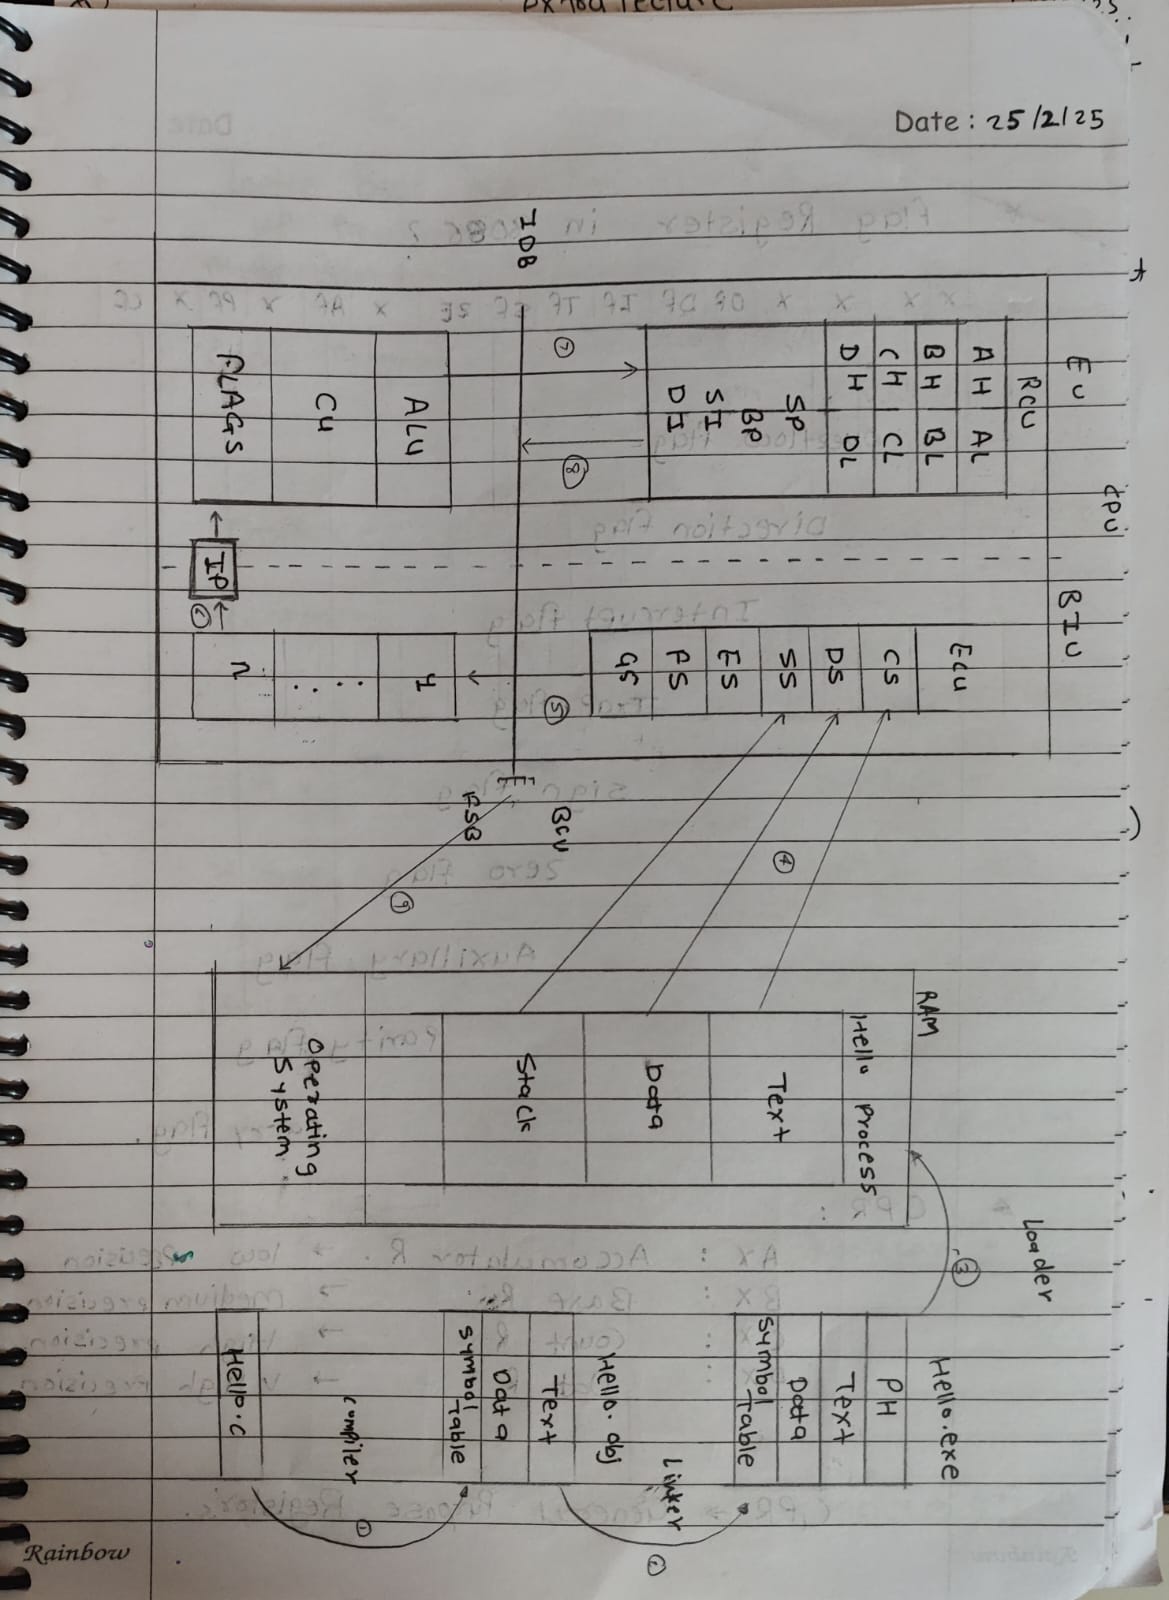 Date : 25/2/25
CPU
EU
BIU
RCU
AH AL
BH BL
CH CL
DH DL
SP
BP
SI
DI
IDB
7
8
ALU
CU
FLAGS
IP
6
ECU
CS
DS
SS
ES
FS
GS
5
4
n
BCU
FSB
4
9
RAM
Hello process
Text
Data
Stack
Operating
System
Loader
3
Hello.exe
PH
Text
Data
Symbol Table
Linker
2
Hello.obj
Text
Data
Symbol Table
Compiler
1
Hello.c
Rainbow